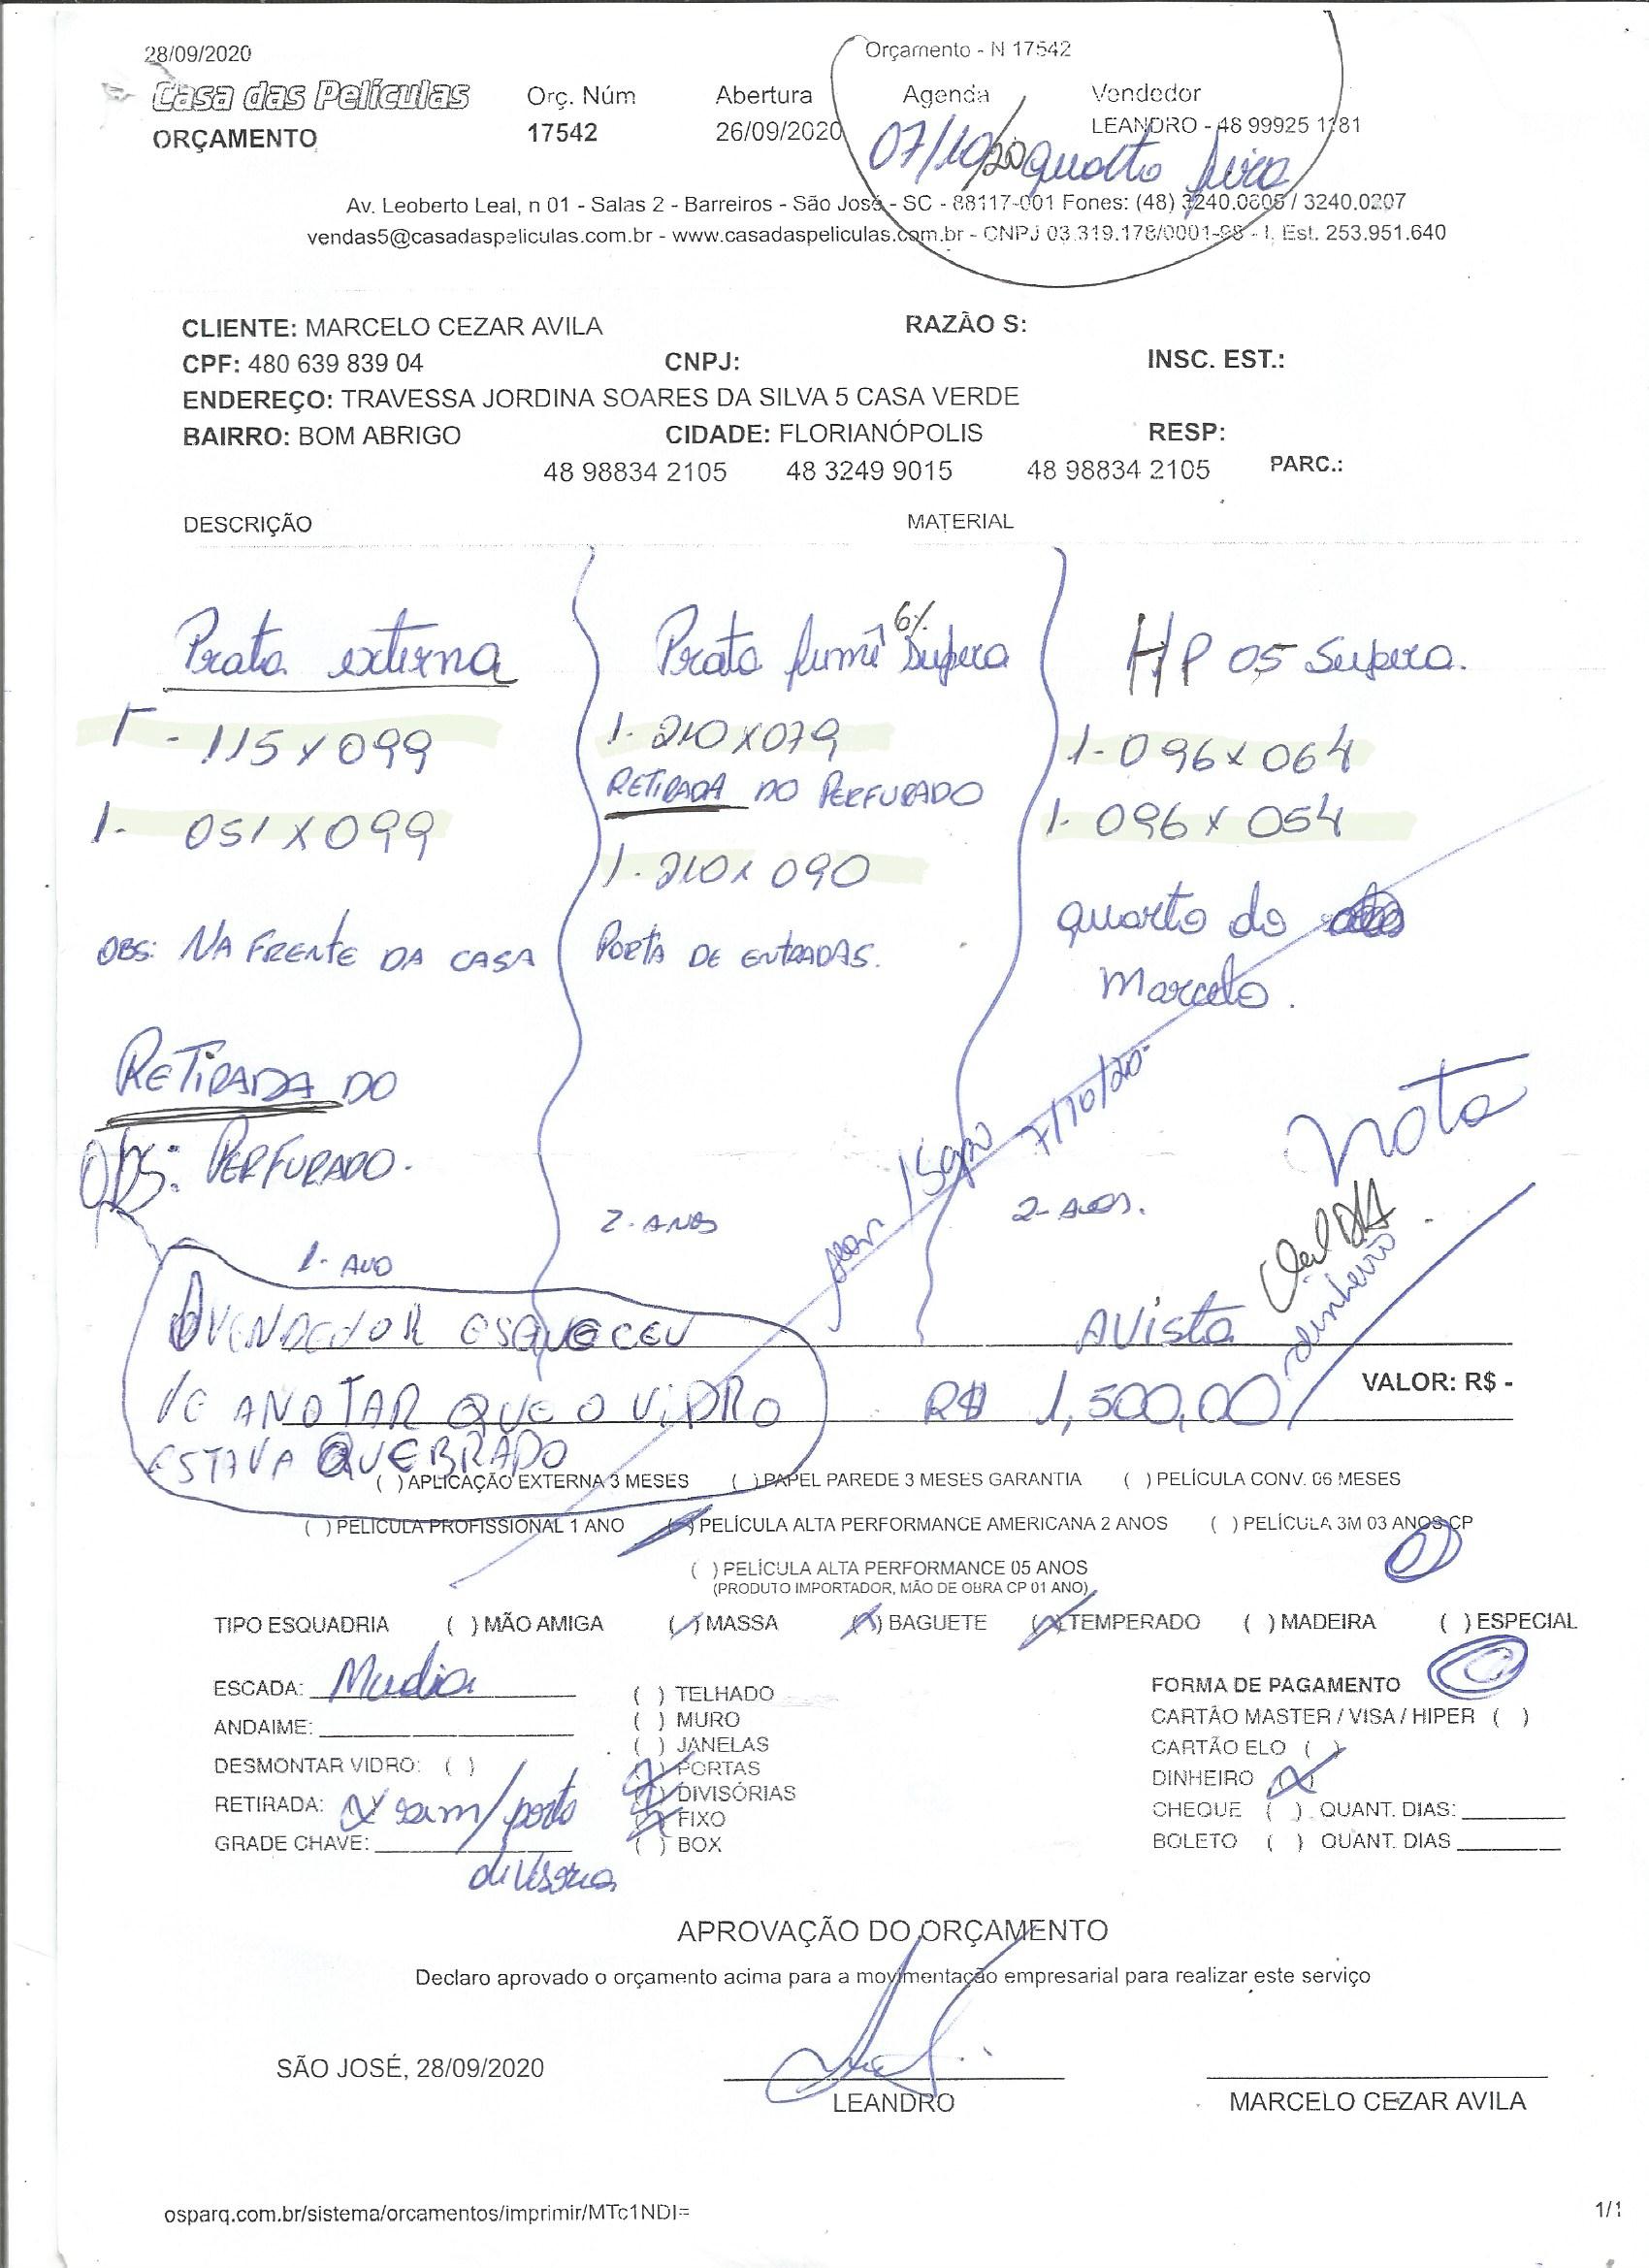 28/09/2020
Orçamento - N 17542
Casa das Películas
Orç. Núm
Abertura
Agenda
Vendedor
ORÇAMENTO
17542
26/09/2020
07/10/20 quarta feira
LEANDRO - 48 99925 1181
Av. Leoberto Leal, n 01 - Salas 2 - Barreiros - São José - SC - 88117-001 Fones: (48) 3240.0606 / 3240.0207
vendas5@casadaspeliculas.com.br - www.casadaspeliculas.com.br - CNPJ 03.319.178/0001-98 - I. Est. 253.951.640
CLIENTE: MARCELO CEZAR AVILA
RAZÃO S:
CPF: 480 639 839 04
CNPJ:
INSC. EST.:
ENDEREÇO: TRAVESSA JORDINA SOARES DA SILVA 5 CASA VERDE
BAIRRO: BOM ABRIGO
CIDADE: FLORIANÓPOLIS
RESP:
48 98834 2105
48 3249 9015
48 98834 2105
PARC.:
DESCRIÇÃO
MATERIAL
Prata externa
1 - 115 x 099
1 - 051 x 099
OBS: NA FRENTE DA CASA
RETIRADA DO
OBS: PERFURADO.
1 - ANO
Prata fumê 6% Supera
1 - 210 x 079
RETIRADA DO PERFURADO
1 - 210 x 090
PORTA DE ENTRADAS.
2 - ANOS
HP 05 Supera.
1 - 096 x 064
1 - 096 x 054
quarto do
Marcelo.
7/10/20
nota
2 - ANOS.
dinheiro
O VENDEDOR ESQUECEU
DE ANOTAR QUE O VIDRO
ESTAVA QUEBRADO
AVista
R$ 1,500,00
VALOR: R$ -
( ) APLICAÇÃO EXTERNA 3 MESES
( ) PAPEL PAREDE 3 MESES GARANTIA
( ) PELÍCULA CONV. 06 MESES
( ) PELÍCULA PROFISSIONAL 1 ANO
(x) PELÍCULA ALTA PERFORMANCE AMERICANA 2 ANOS
( ) PELÍCULA 3M 03 ANOS CP
( ) PELÍCULA ALTA PERFORMANCE 05 ANOS
(PRODUTO IMPORTADOR, MÃO DE OBRA CP 01 ANO)
TIPO ESQUADRIA
( ) MÃO AMIGA
(/) MASSA
(x) BAGUETE
(x) TEMPERADO
( ) MADEIRA
( ) ESPECIAL
ESCADA: Media
ANDAIME:
DESMONTAR VIDRO: ( )
RETIRADA: (x) sim / porta
divisoria
GRADE CHAVE:
( ) TELHADO
( ) MURO
( ) JANELAS
(x) PORTAS
(x) DIVISÓRIAS
(x) FIXO
( ) BOX
FORMA DE PAGAMENTO
CARTÃO MASTER / VISA / HIPER ( )
CARTÃO ELO ( )
DINHEIRO (x)
CHEQUE ( ) QUANT. DIAS:
BOLETO ( ) QUANT. DIAS
APROVAÇÃO DO ORÇAMENTO
Declaro aprovado o orçamento acima para a movimentação empresarial para realizar este serviço
SÃO JOSÉ, 28/09/2020
LEANDRO
MARCELO CEZAR AVILA
osparq.com.br/sistema/orcamentos/imprimir/MTc1NDI=
1/1